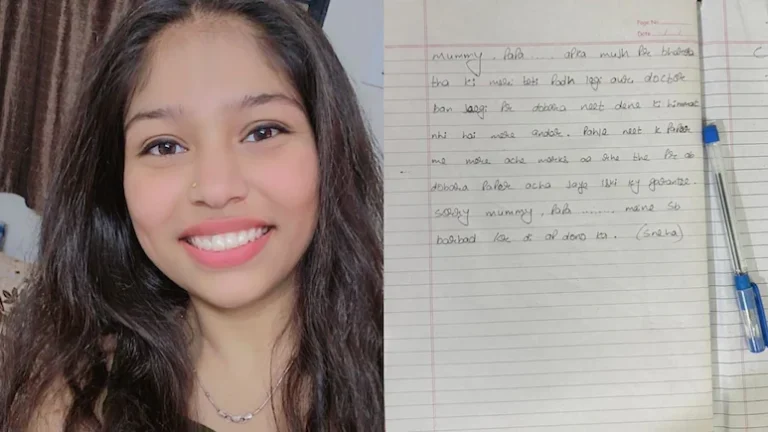 Page No.
Date
mummy, Papa ..... apka mujh Pr bharosa
tha ki meri beti Padh legi aur doctor
ban jaegi Pr dobara neet dene ki himmat
nhi hai mere andar. Pahle neet k Paper
me mere ache marks aa rhe the Pr ab
dobaha Paper acha jaye iski ky garantee.
sorry mummy, Papa ......... maine sb
barbad kr di ap dono ka. (Sneha)
C